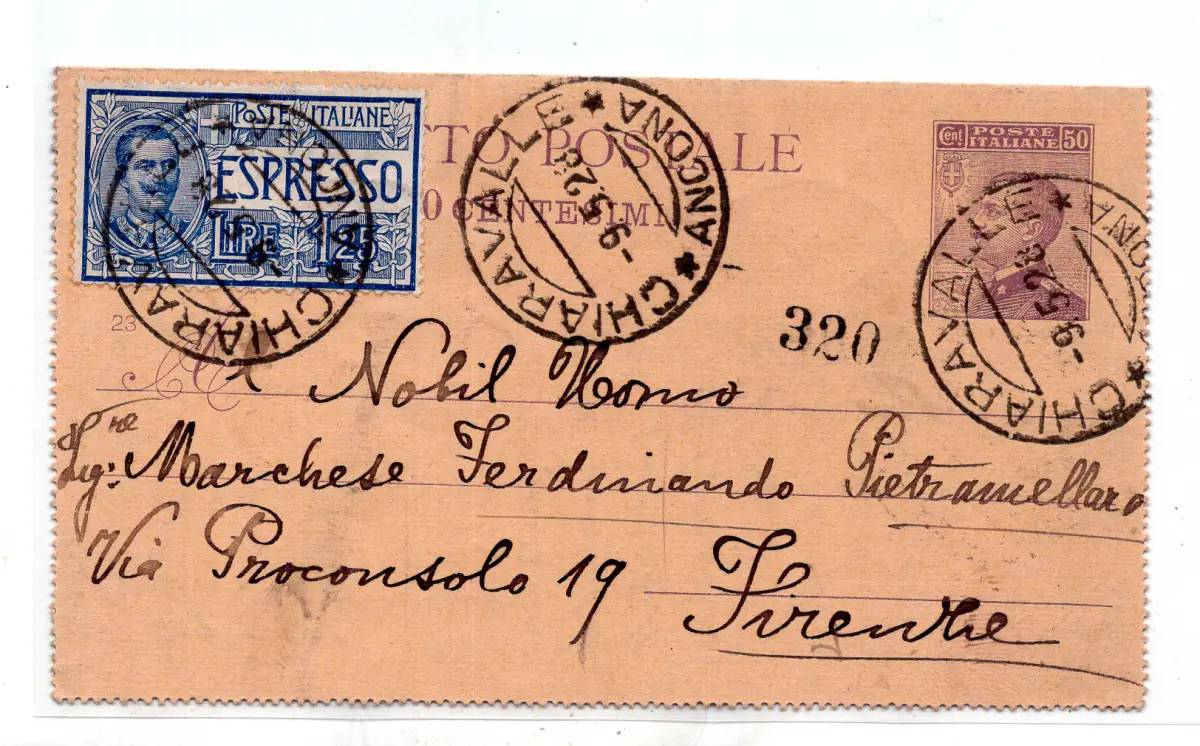 POSTE ITALIANE
ESPRESSO
LIRE 1,25
TTO POSTALE
0 CENTESIMI
Cent. POSTE ITALIANE 50
CHIARAVALLE ★ ANCONA ★
-9.5.28
CHIARAVALLE ★ ANCONA ★
-9.5.28
CHIARAVALLE ★ ANCONA ★
-9.5.28
320
23
Nobil Uomo
Sig: Marchese Ferdinando Pietramellara
Via Proconsolo 19
Firenze